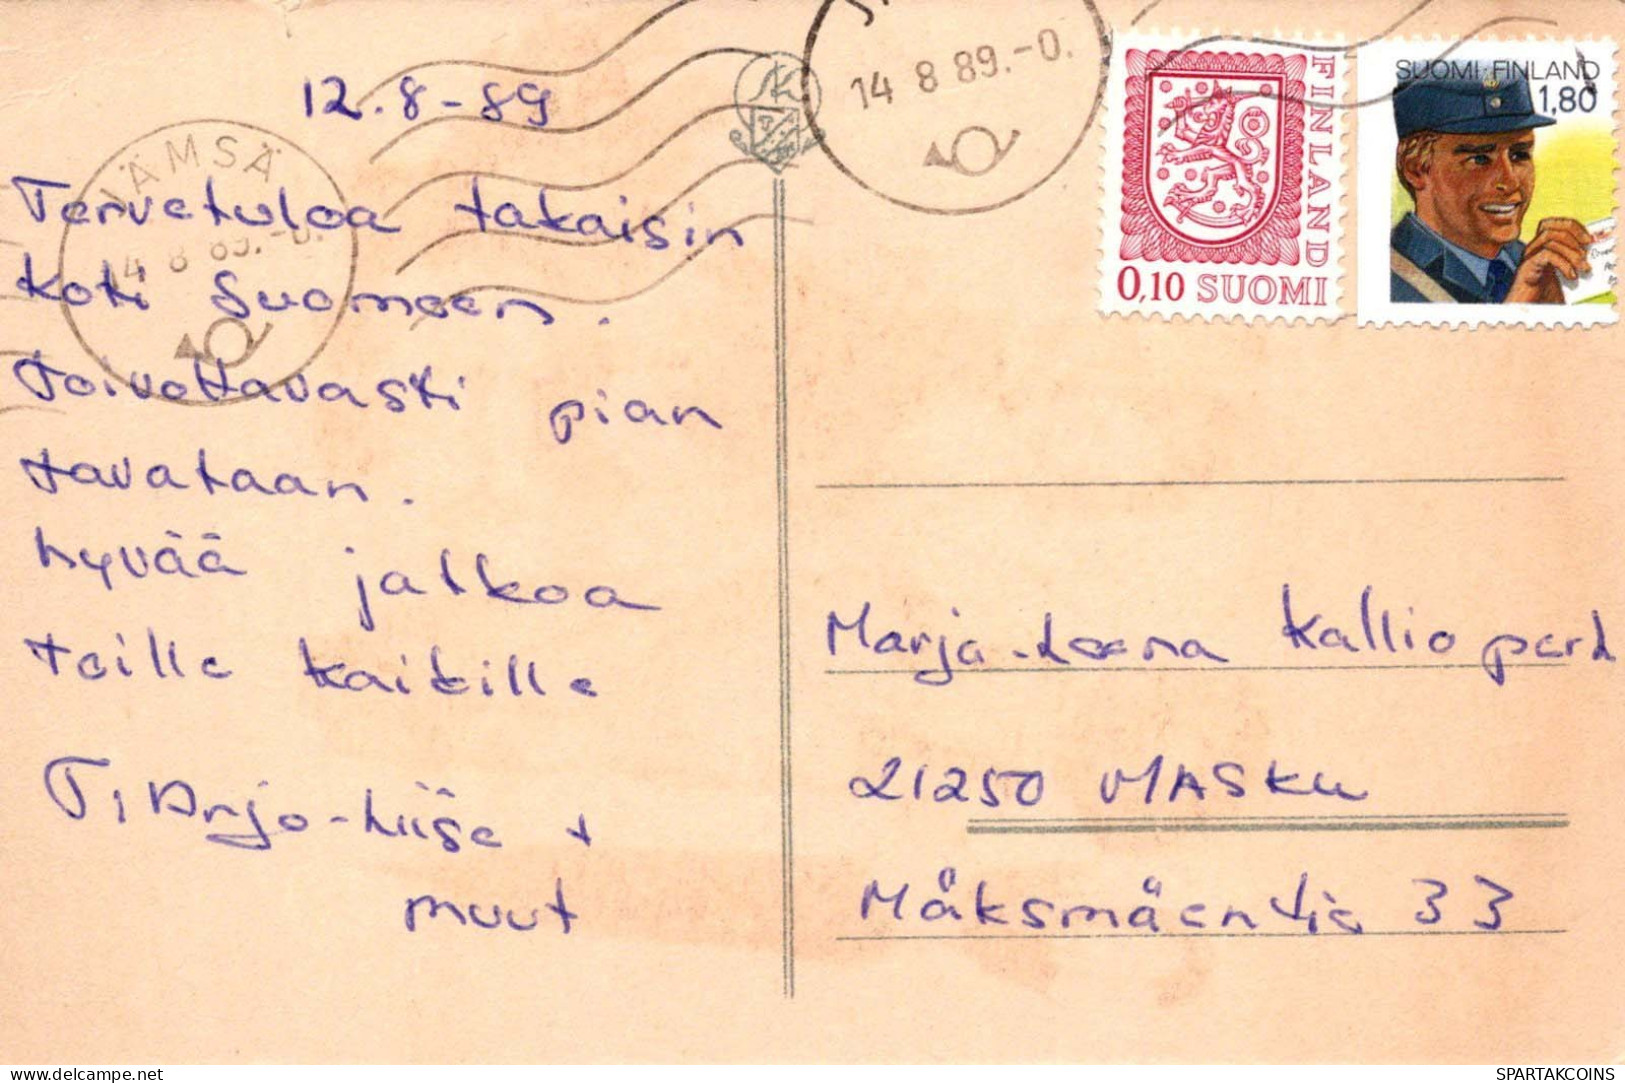 12.8-89
JÄMSÄ
14 8 89.-0.
14 8 89.-0.
FINLAND
0,10 SUOMI
SUOMI-FINLAND
1,80
Tervetuloa takaisin
koti Suomeen.
Toivottavasti pian
tavataan.
hyvää jatkoa
teille kaikille
T, Arjo-Liise +
muut
Marja-Leena Kallio perh
21250 MASKU
Måksmäentie 33
delcampe.net
SPARTAKCOINS